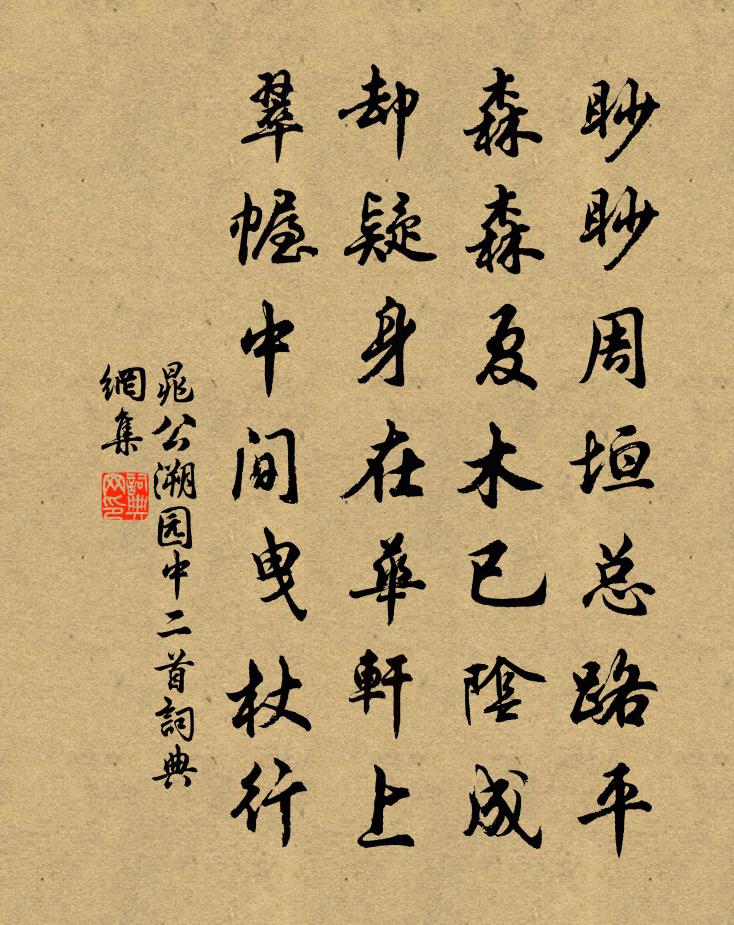 眇眇周垣总路平
森森夏木已陰成
却疑身在華軒上
翠幄中间曳杖行
晁公溯园中二首詞典
網集
詞典
网印